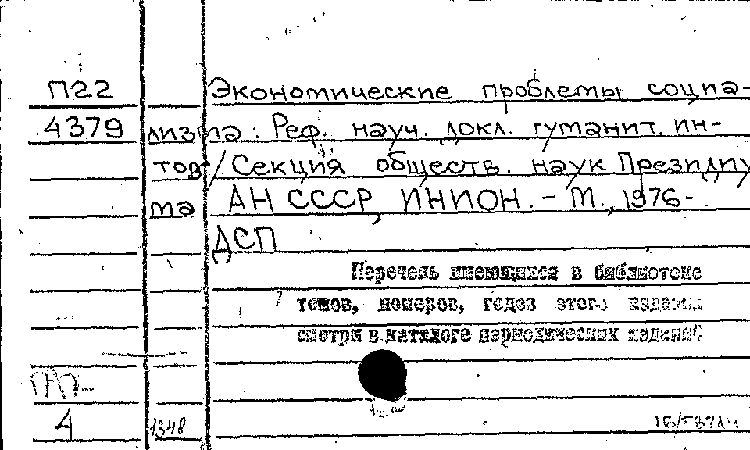 П22 Экономические проблемы социа-
4379 лизма: Реф. науч. докл. гуманит. ин-
тов / Секция обществ. наук Президиу
ма АН СССР, ИНИОН. - М., 1976-
ДСП
Перечень имеющихся в библиотеке
томов, номеров, годов этого издания
смотри в каталоге периодических изданий
4 1348